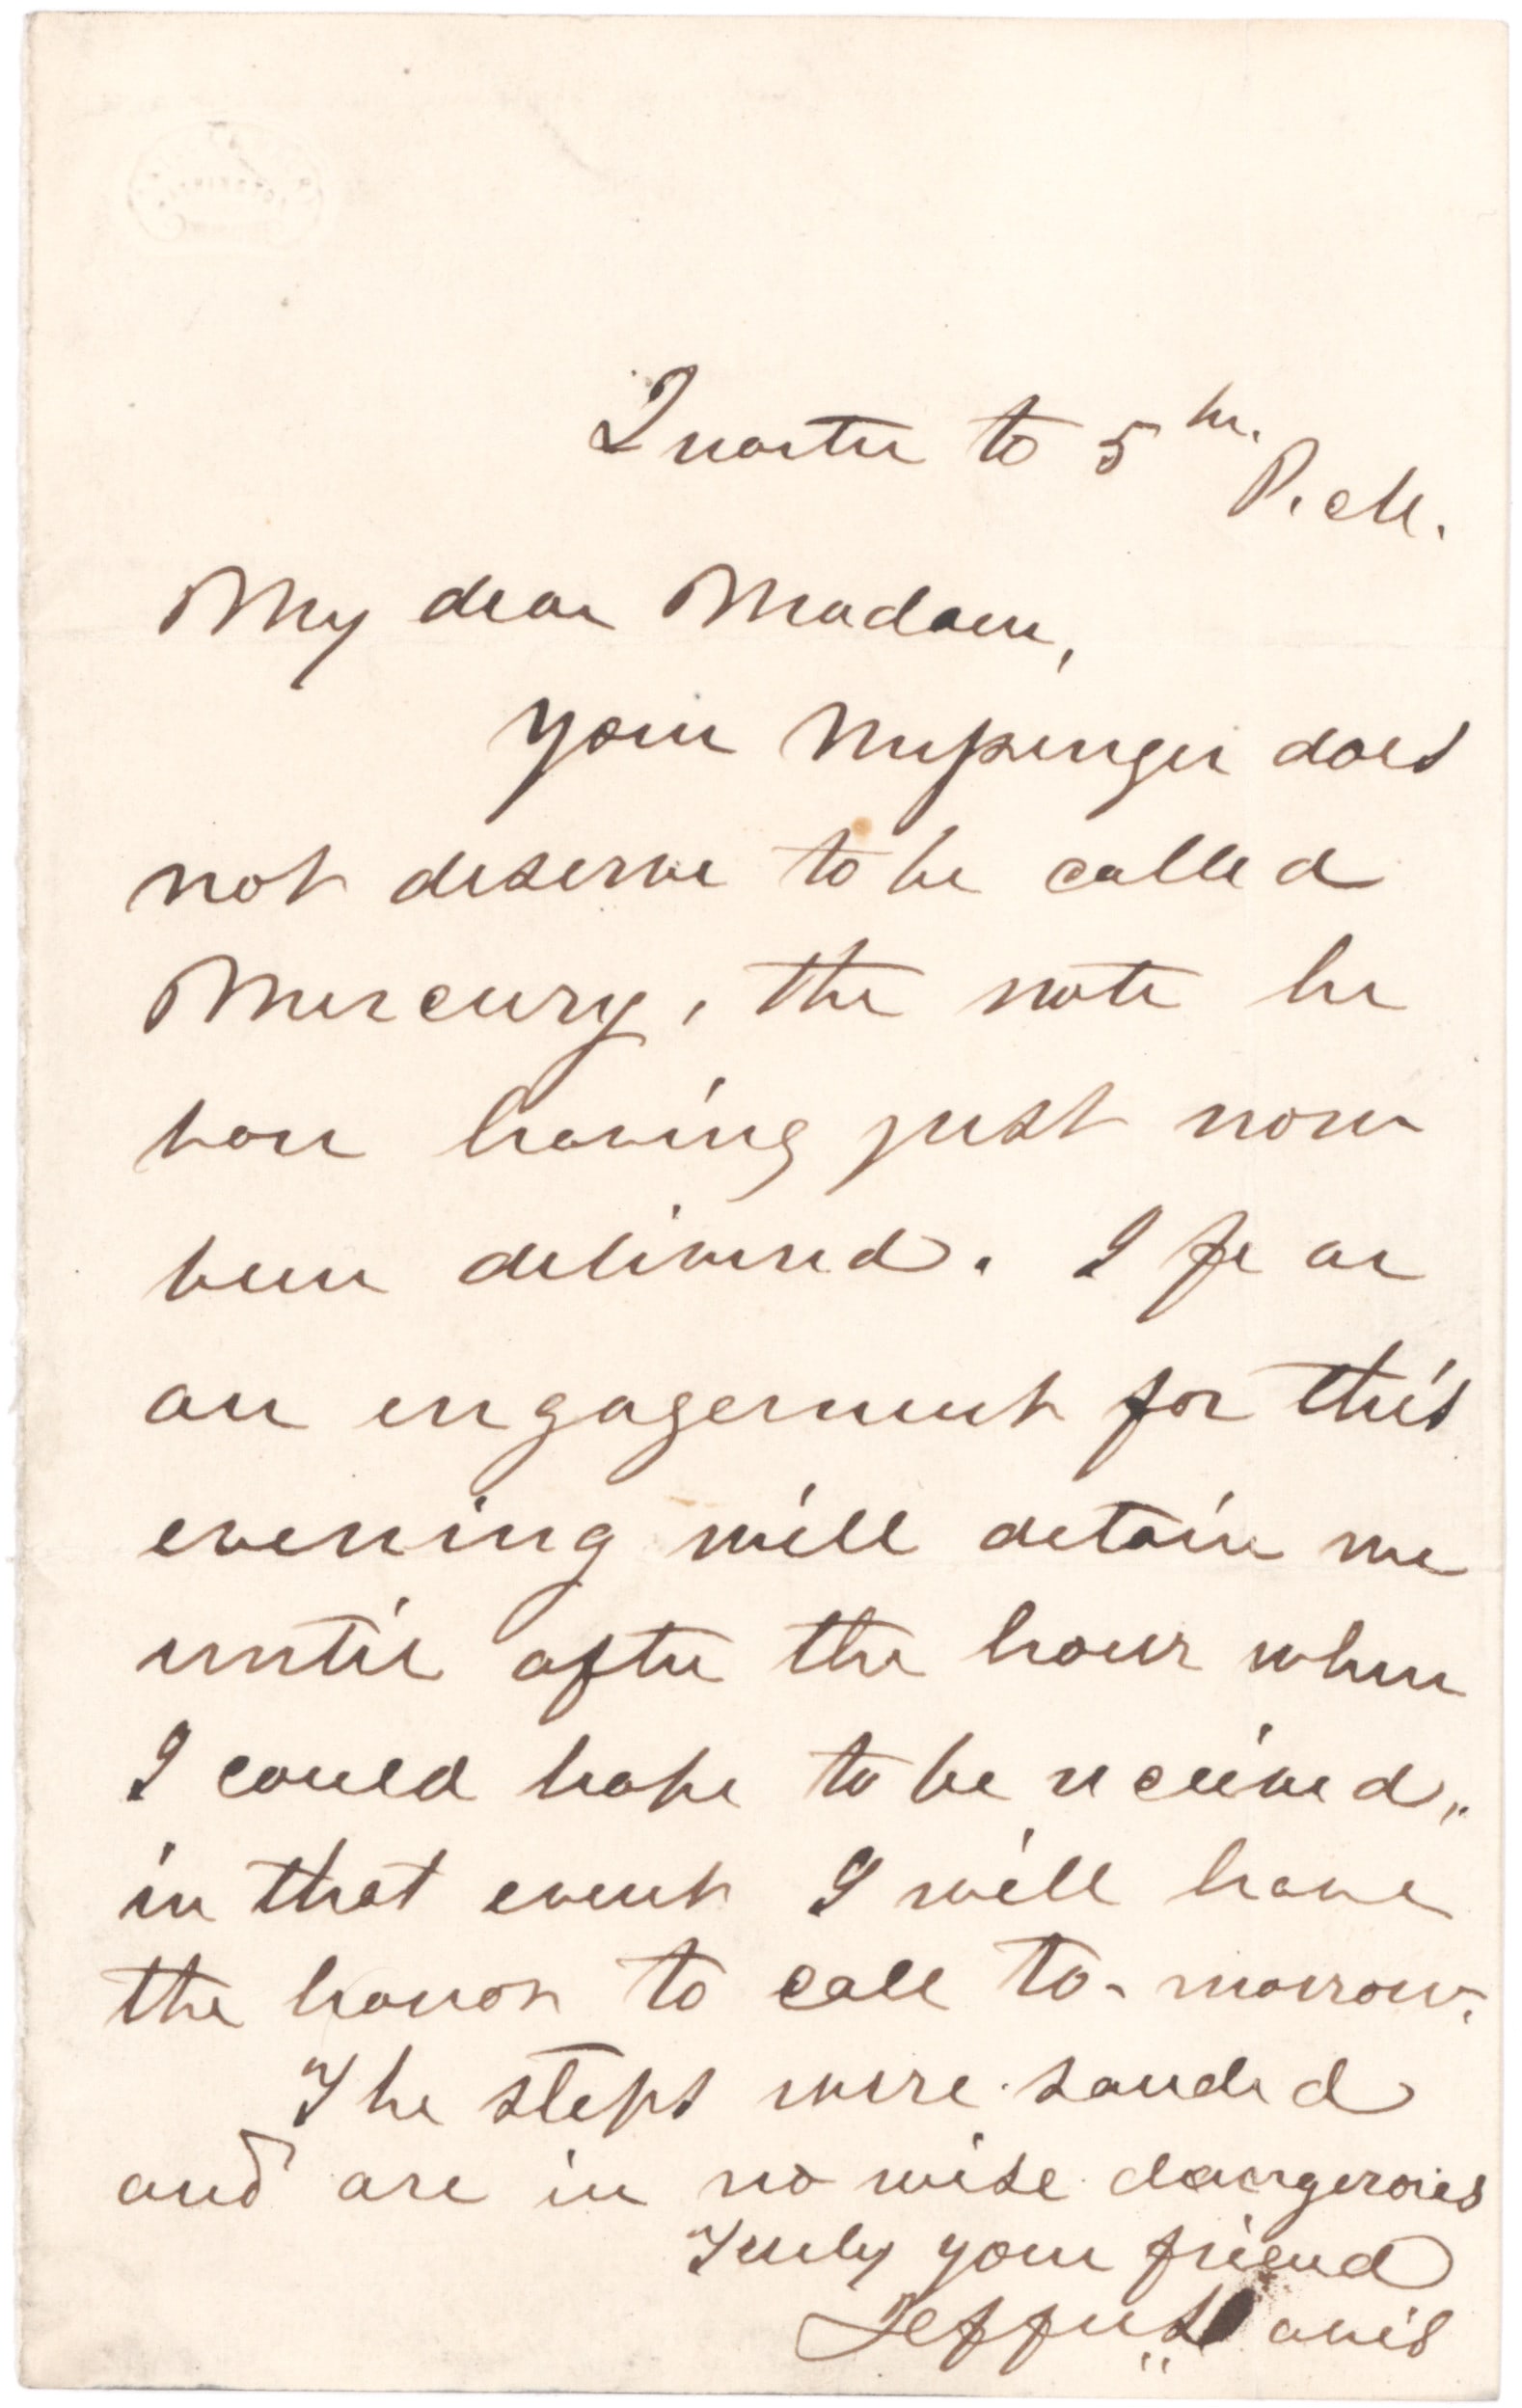 Quarter to 5 hr.
P. M.
My dear Madam,
your Messenger does
not deserve to be called
Mercury, the note he
bore having just now
been delivered. I fear
an engagement for this
evening will detain me
until after the hour when
I could hope to be received,
in that event I will have
the honor to call to-morrow.
The steps were sanded
and are in no wise dangerous
Truly your friend
Jeffn Davis